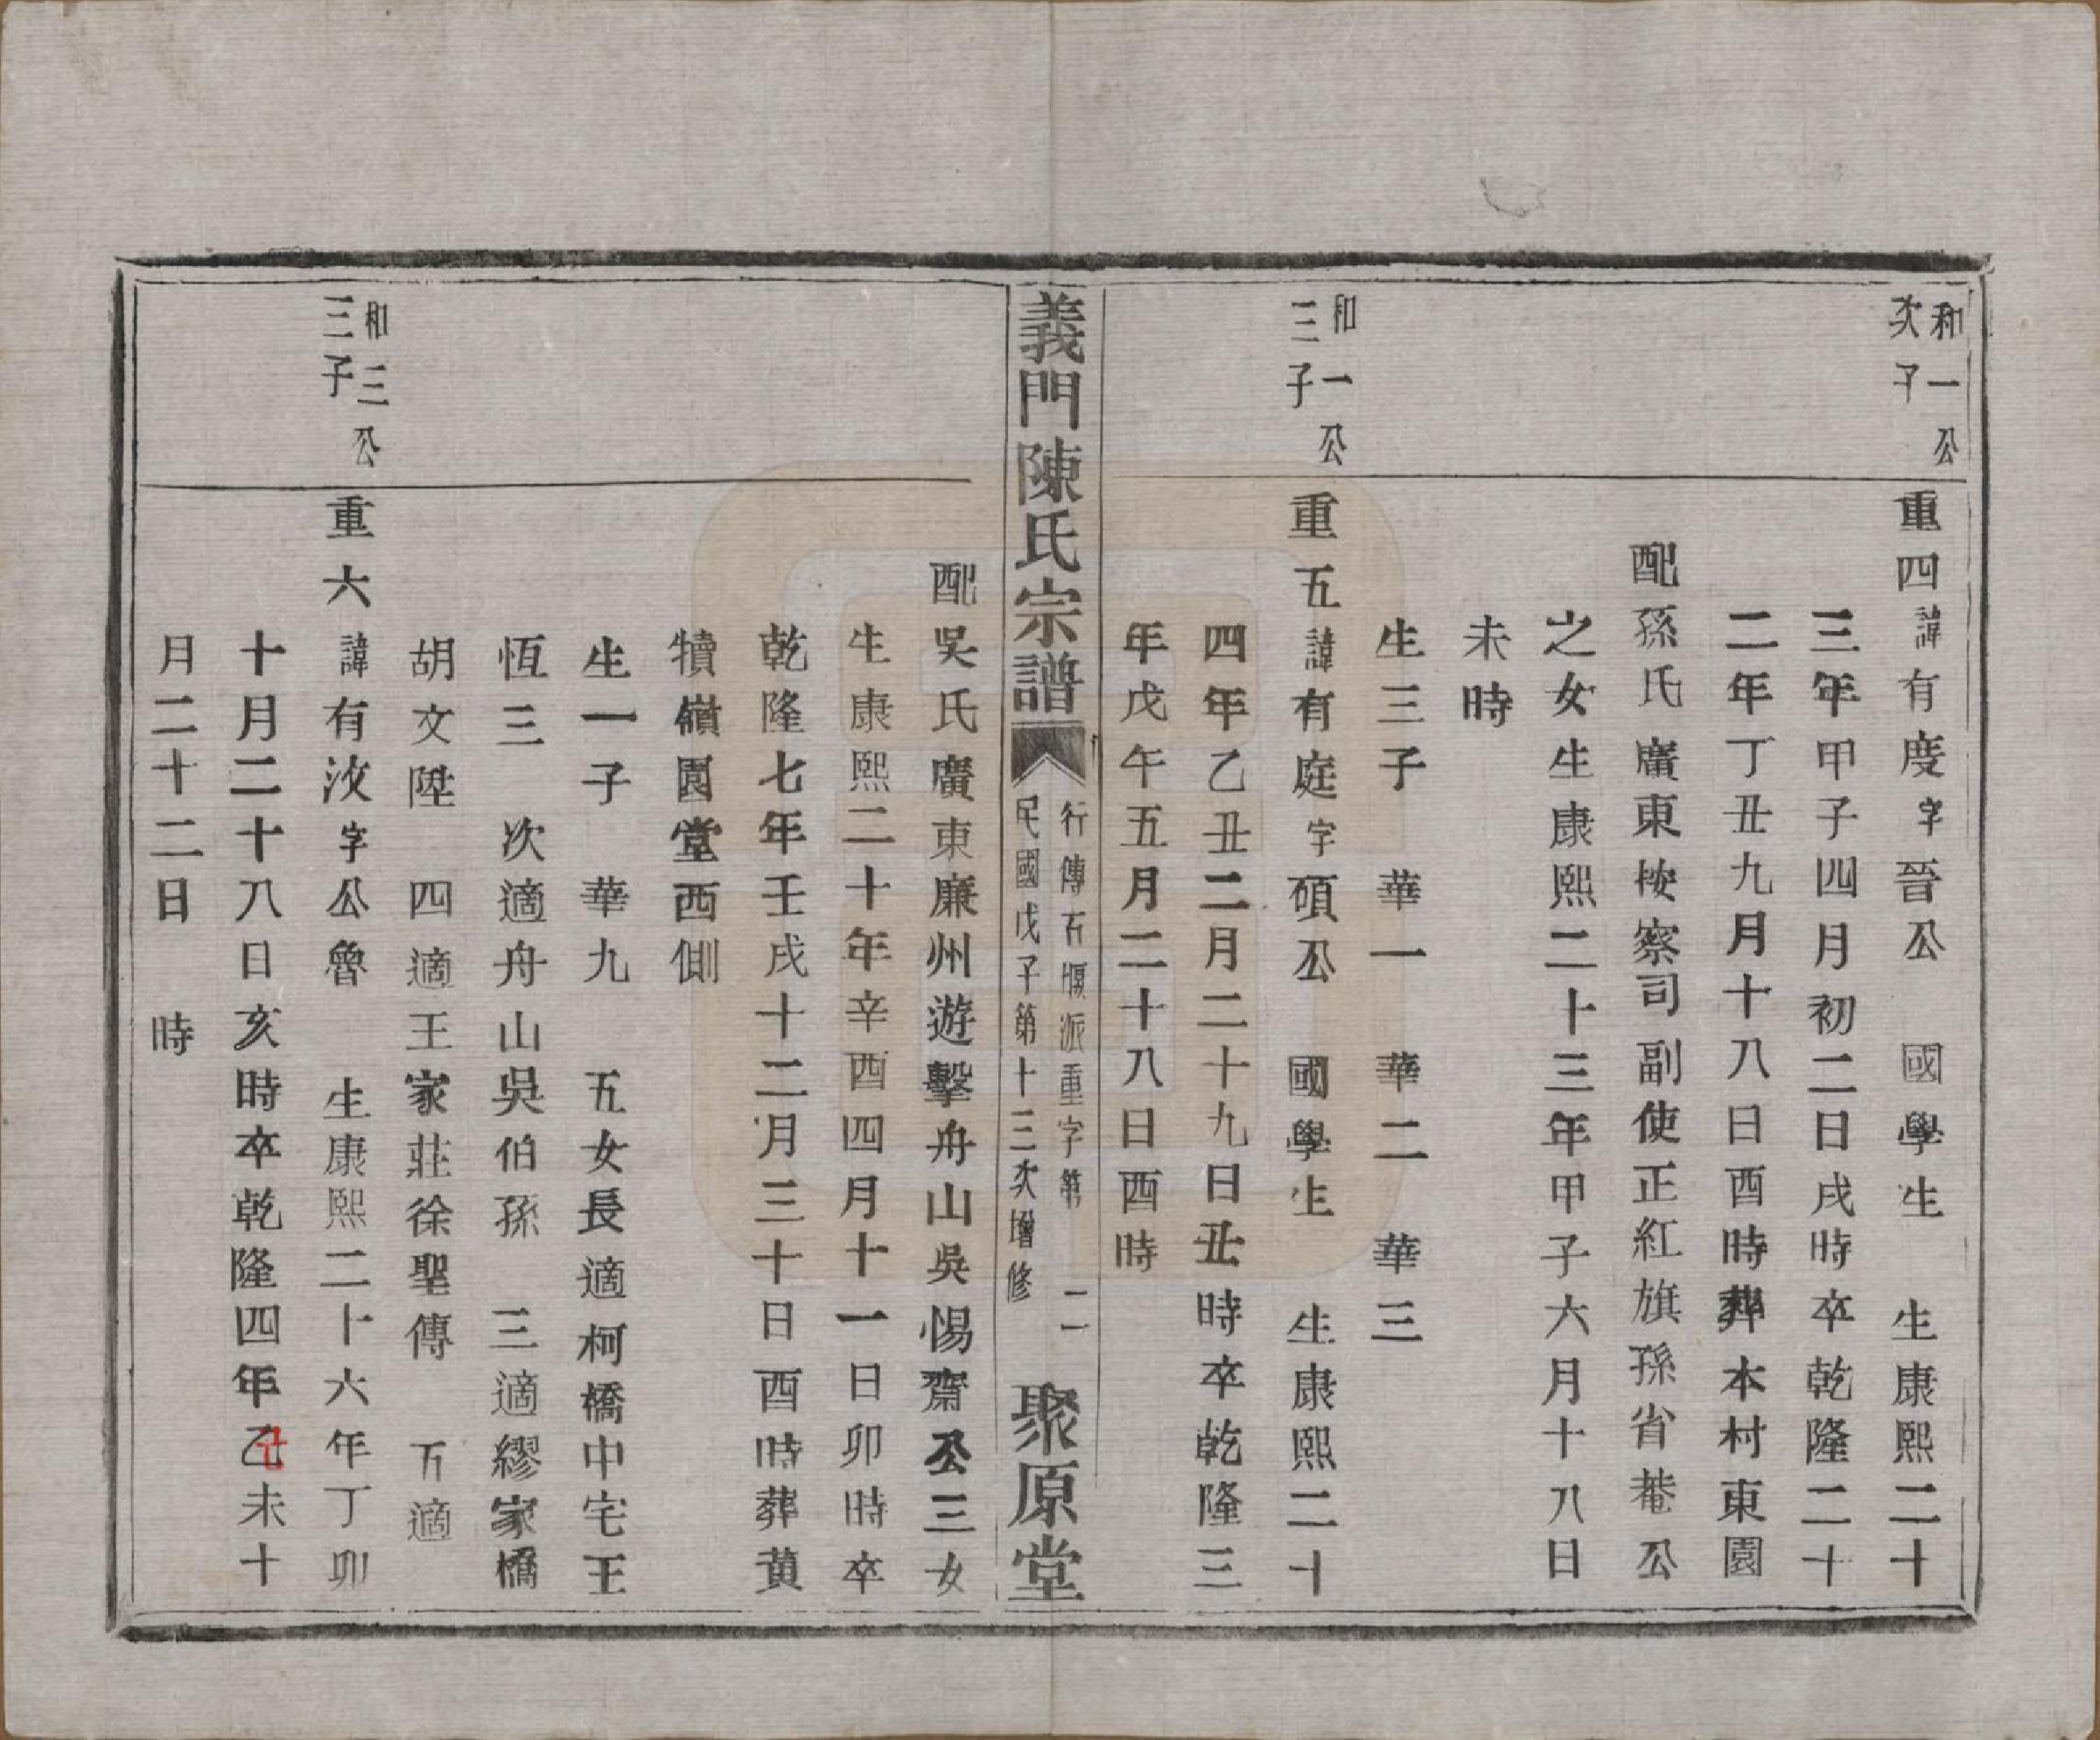 和一公
次子
重四諱有度字晉公　國學生　生康熙二十
三年甲子四月初二日戌時卒乾隆二十
二年丁丑九月十八日酉時葬本村東園
配孫氏廣東按察司副使正紅旗孫省菴公
之女生康熙二十三年甲子六月十八日
未時
生三子　華一　華二　華三
和一公
三子
重五諱有庭字碩公　國學生　生康熙二十
四年乙丑二月二十九日丑時卒乾隆三
年戊午五月二十八日酉時
義門陳氏宗譜
行傳石堰派重字第　二
民國戊子第十三次增修
聚原堂
配吳氏廣東廉州遊擊舟山吳惕齋公三女
生康熙二十年辛酉四月十一日卯時卒
乾隆七年壬戌十二月三十日酉時葬黃
犢嶺園堂西側
生一子　華九　五女長適柯橋中宅王
恆三　次適舟山吳伯孫　三適繆家橋
胡文陞　四適王家莊徐聖傳　五適
和三公
三子
重六諱有汶字公魯　生康熙二十六年丁卯
十月二十八日亥時卒乾隆四年乙未十
月二十二日　時